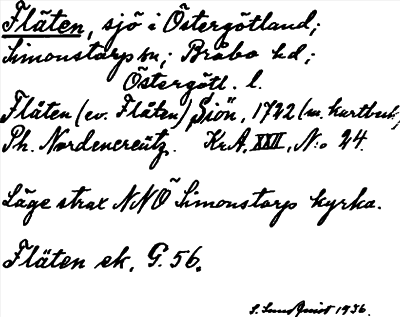 Fläten, sjö i Östergötland;
Simonstorp sn; Bråbo hd;
Östergötl. l.
Fläten (ev. Flåten) Siön, 1722 (m. kartbesk.)
Ph. Nordencreütz. Kr.A. XXII, N:o 24.
Läge strax NNÖ Simonstorp kyrka.
Fläten ek. G. 56.
S. Sundquist 1936.